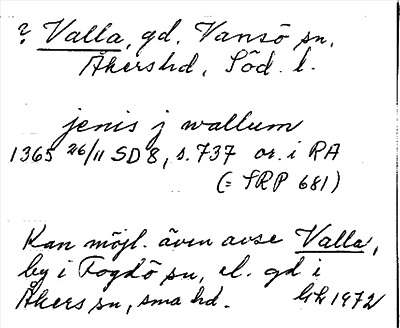 ? Valla, gd, Vansö sn,
Åkers hd, Söd. l.
jenis j wallum
1365 26/11 SD 8, s. 737 or. i RA
(= SRP 681)
Kan möjl. även avse Valla,
by i Fogdö sn, el. gd i
Åkers sn, sma hd.
1972